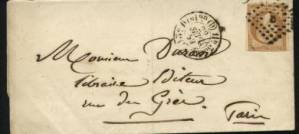 Monsieur Durand
libraire Editeur
rue des Grès
Paris